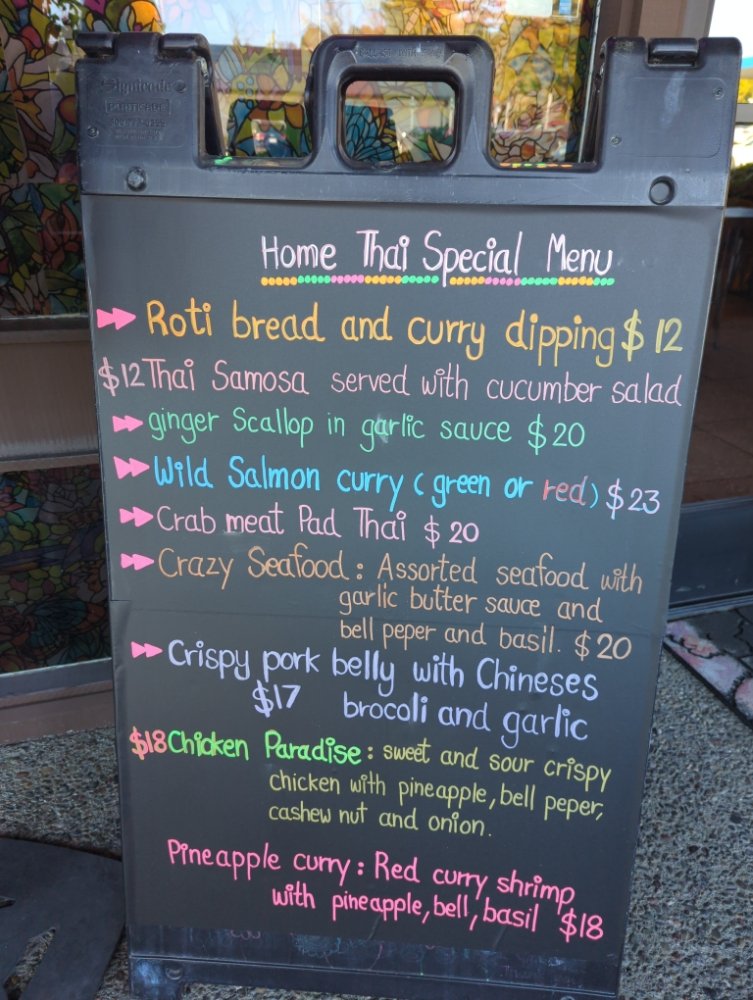 Signicade
Home Thai Special Menu
Roti bread and curry dipping $12
$12 Thai Samosa served with cucumber salad
ginger Scallop in garlic sauce $20
Wild Salmon curry (green or red) $23
Crab meat Pad Thai $20
Crazy Seafood: Assorted seafood with
garlic butter sauce and
bell peper and basil. $20
Crispy pork belly with Chineses
$17 brocoli and garlic
$18 Chicken Paradise: sweet and sour crispy
chicken with pineapple, bell peper,
cashew nut and onion.
Pineapple curry: Red curry shrimp
with pineapple, bell, basil $18